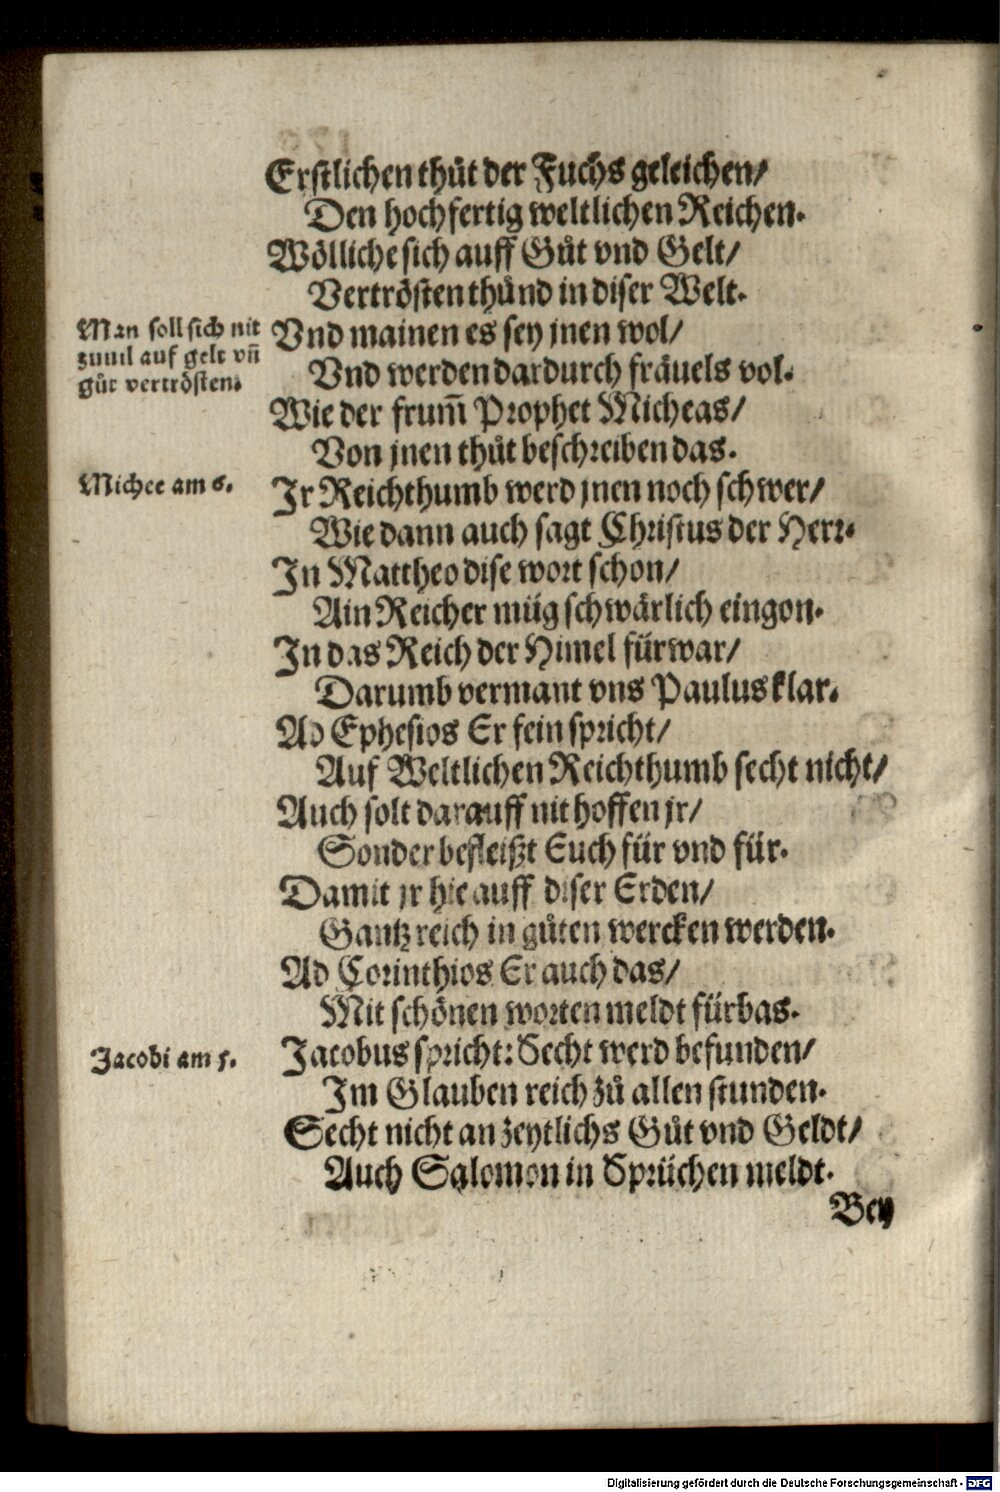 Erstlichen thůt der Fuchs geleichen/
Den hochfertig weltlichen Reichen.
Wölliche sich auff Gůt vnd Gelt/
Vertrösten thůnd in diser Welt.
Man soll sich nit
zuuil auf gelt vn̄
gůt vertrösten.
Vnd mainen es sey jnen wol/
Vnd werden dardurch fräuels vol.
Wie der frum̄ Prophet Micheas/
Von jnen thůt beschreiben das.
Michee am 6.
Jr Reichthumb werd jnen noch schwer/
Wie dann auch sagt Christus der Herr.
In Mattheo dise wort schon/
Ain Reicher müg schwärlich eingon.
In das Reich der Himel fürwar/
Darumb vermant vns Paulus klar.
Ad Ephesios Er fein spricht/
Auf Weltlichen Reichthumb secht nicht/
Auch solt darauff nit hoffen jr/
Sonder befleißt Euch für vnd für.
Damit jr hie auff diser Erden/
Gantz reich in gůten wercken werden.
Ad Corinthios Er auch das/
Mit schönen worten meldt fürbas.
Jacobi am 5.
Jacobus spricht: Secht werd befunden/
Im Glauben reich zů allen stunden.
Secht nicht an zeytlichs Gůt vnd Geldt/
Auch Salomon in Sprüchen meldt.
Bey
Digitalisierung gefördert durch die Deutsche Forschungsgemeinschaft - DFG